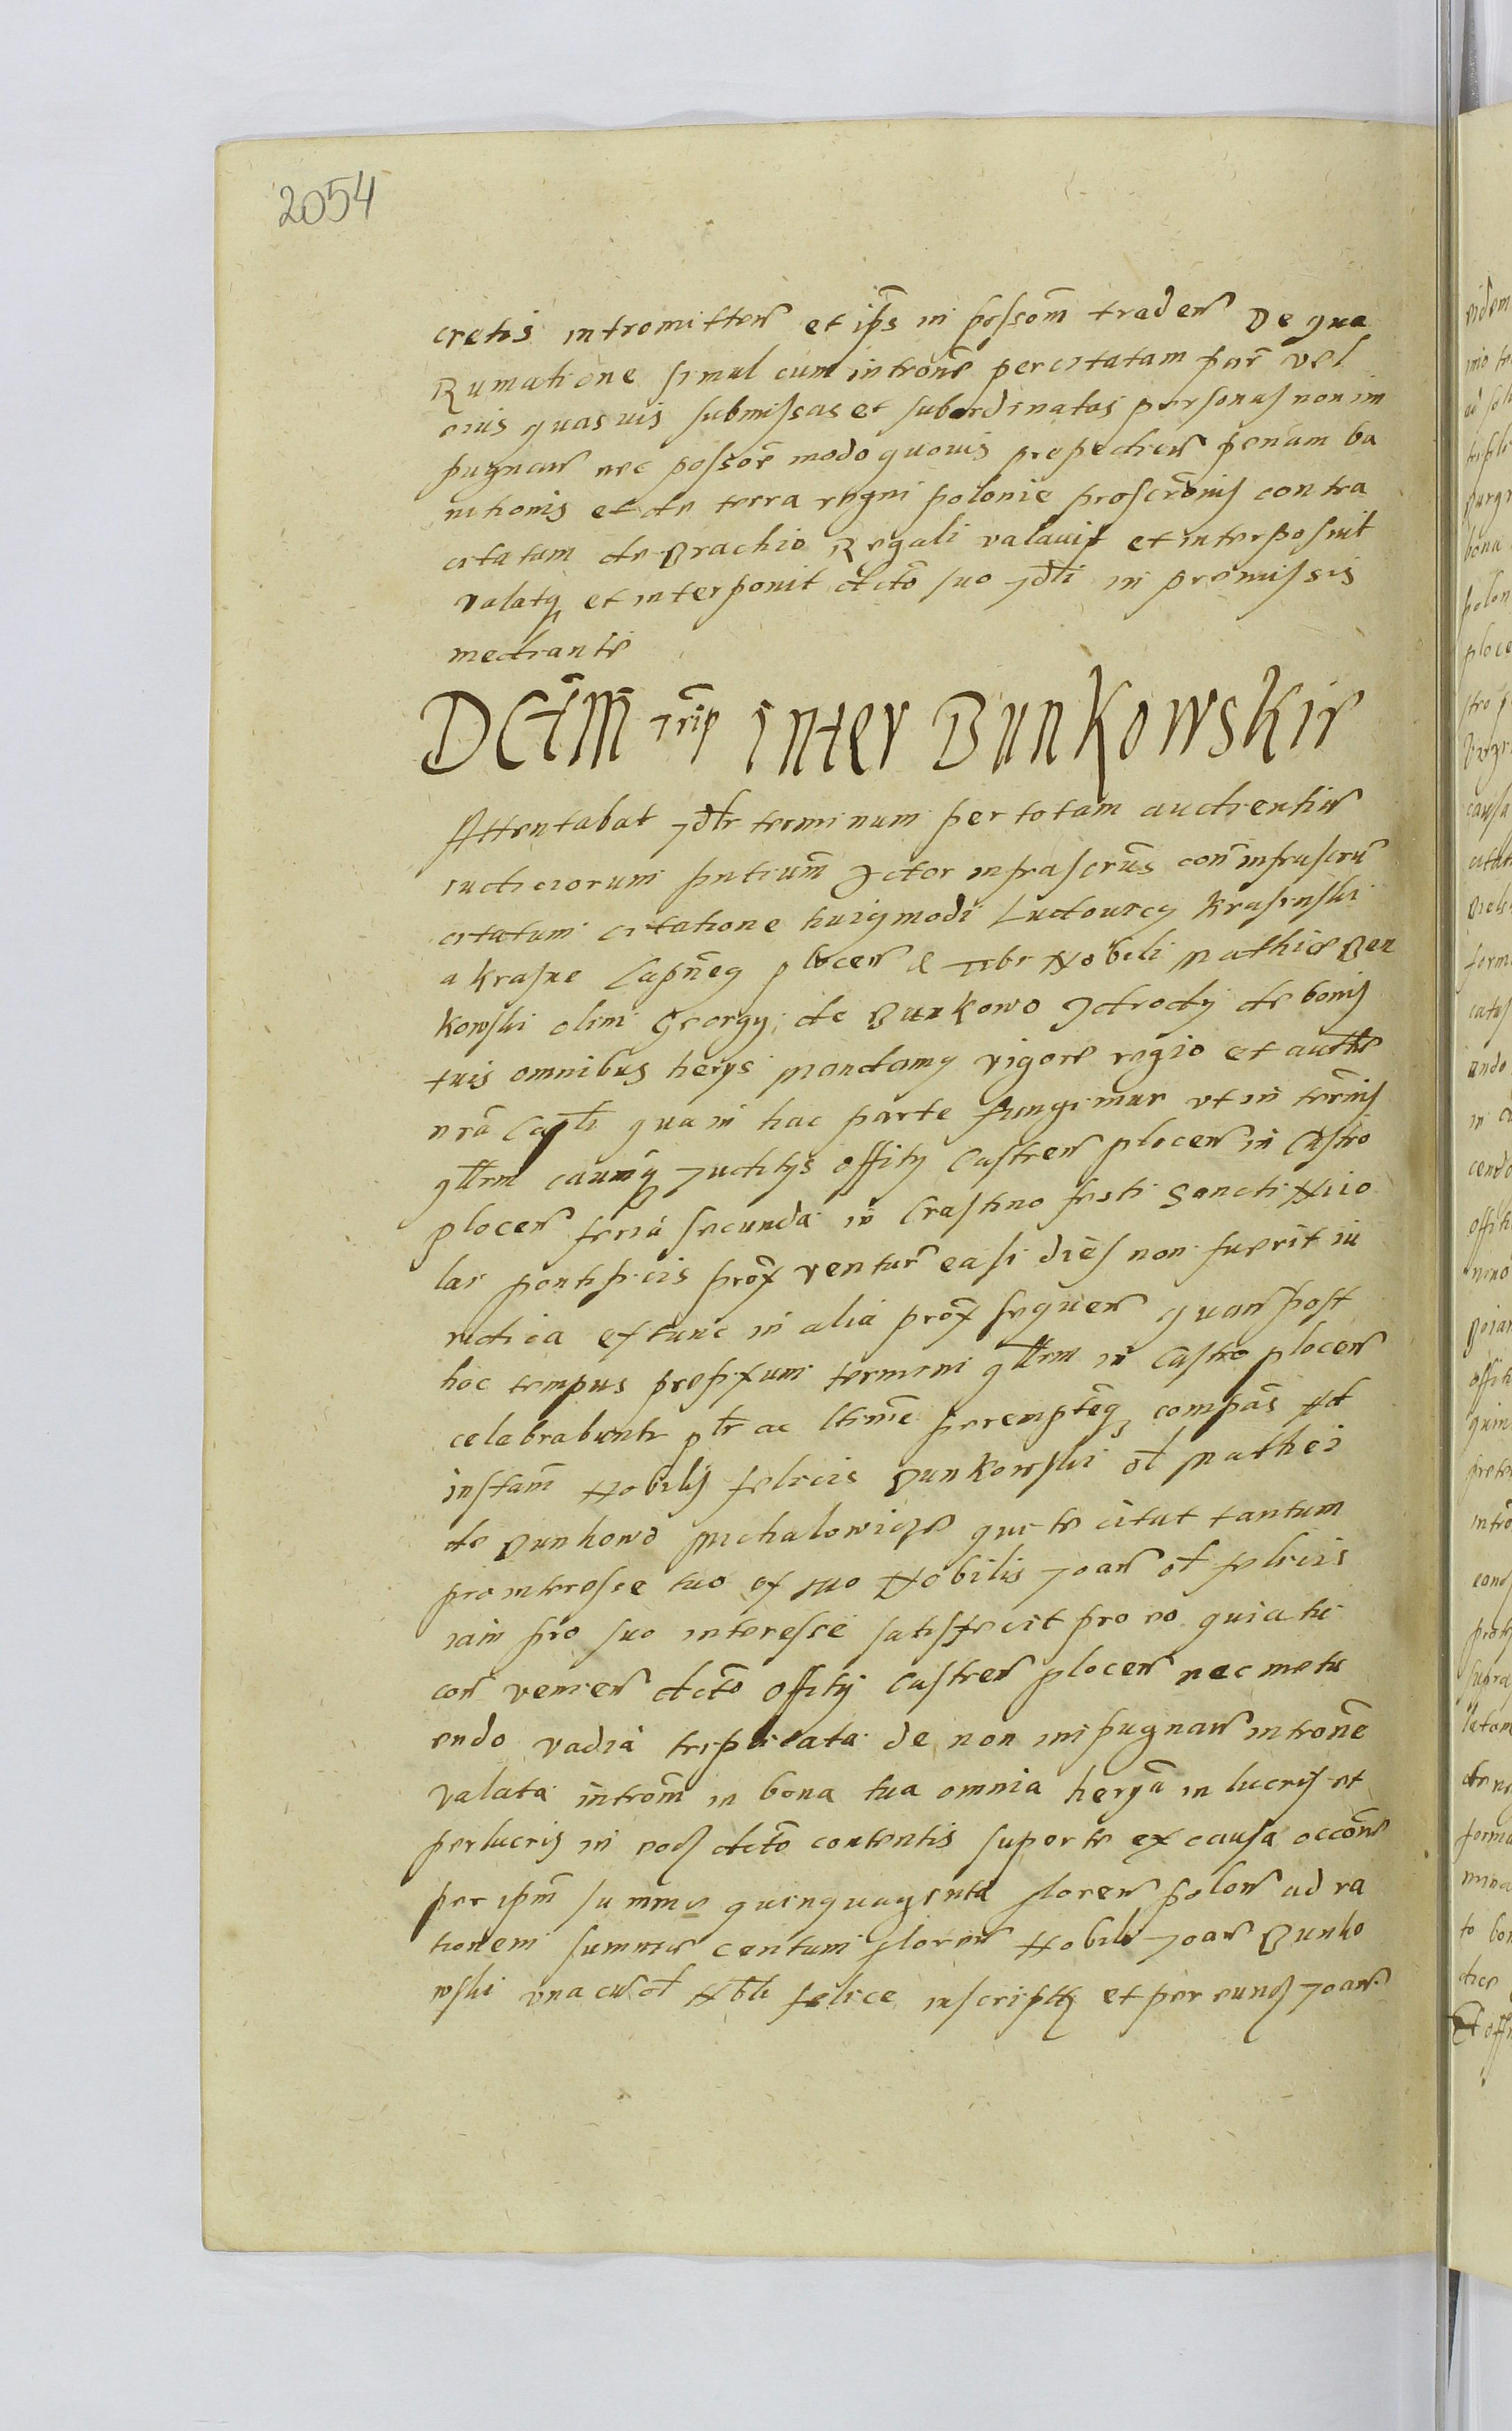 2054
cretis intromitten et ips in possom traden De qua
Rumatione simul cum introne per citatam par vel
eius quasuis submissas et subordinatas personas non im
pugnan nec possore modo quouis prepedien penam ba
nitionis et de terra regni polonie proscronis contra
citatam de Brachio Regali valauit et interposuit
valatq et interponit dcto suo Jdli in premissis
mediante
Dctm inter Bunkowskie
Attentabat Jdlr terminum per totam audientiam
iudiciorum pntium Actor infrascrus con infrascru
citatum citatione huiqmodi Ludouicq Krasinski
a Krasne Capneq plocen Tibi Nobili Mathie Bun
kowski olim Georgij de Bunkowo Idrody de bonis
tuis omnibus herijs mandamq vigore regio et authe
nra Capli qua in hac parte fungimur vt in termis
qllrm caumq Juditijs Offitij Castren plocen in Castro
plocen feria secunda in Crastino festi Sancti Nico
lai pontificis prox ventur ea si dies non fuerit iu
ridica extunc in alia prox sequen quan post
hoc tempus prefixum termini qllrm in Castro plocen
celebrabuntr plr ac ltime perempteq compas Ad
instam Nobilis felicis Bunkowski ol Mathei
de Bunkowo Michalowicze qui te citat tantum
pro interesse tuo ex quo Nobilis Joan ol felicis
iam pro suo interesse satisfecit pro eo quia tu
con venien dcto Offitij Castren plocen nec metu
endo vadia triplicata de non impugnan introne
valata introm in bona tua omnia herija in lucris et
perlucris in eod dcto contentis super te ex causa occone
per ipm summe quinquaginta floren polon ad ra
tionem summe centum floren Nobili Joan Bunko
wski vna cu ol Nbli felice inscript et per eund Joan